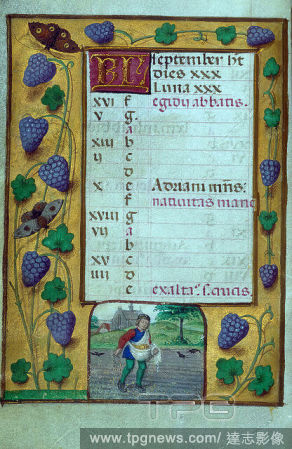 KL September ht
dies xxx
Luna xxx
xvi f egidii abbatis.
v g.
a
xiii b
ij c
d
x e Adriani mris:
f nativitas marie
xviii g
vij a
b
xv c
iiii d
e exalta. s. crucis.
TPG
www.tpgnews.com / 達志影像